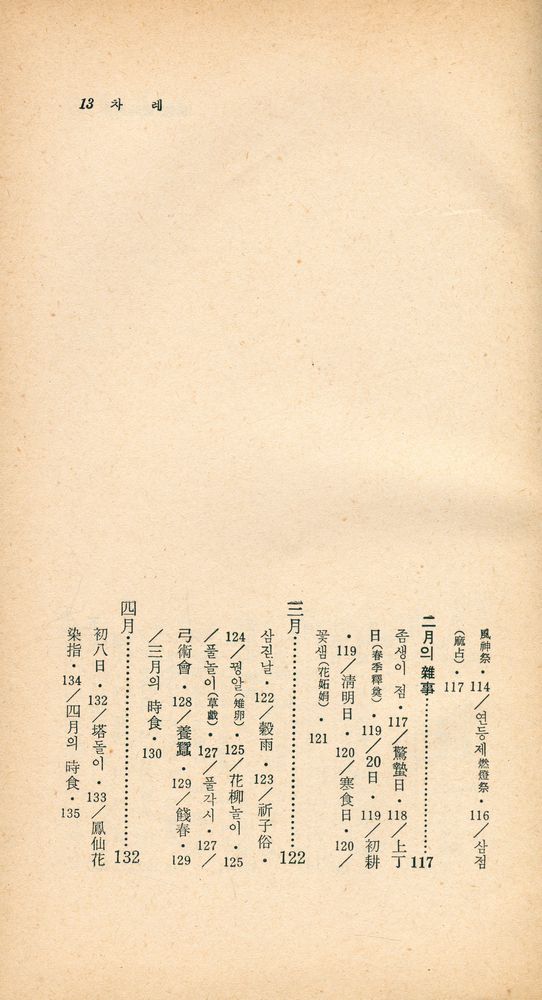 13 차 례
風神祭·114／연등제 燃燈祭·116／삼점
(麻占)·117
二月의 雜事……………………117
좀생이 점·117／驚蟄日·118／上丁
日(春季釋奠)·119／20日·119／初耕
·119／淸明日·120／寒食日·120／
꽃샘(花妬娟)·121
三月……………………122
삼짇날·122／穀雨·123／祈子俗·
124／꿩알(雉卵)·125／花柳놀이·125
／풀놀이(草戱)·127／풀각시·127／
弓術會·128／養蠶·129／餞春·129
／三月의 時食·130
四月……………………132
初八日·132／塔돌이·133／鳳仙花
染指·134／四月의 時食·135